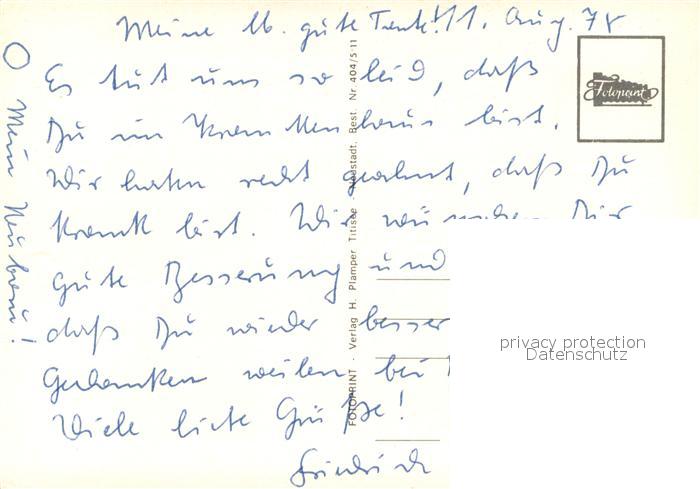 Meine lb. gute Tante! 11. Aug. 78
Es tut uns so leid, daß
Du im Krankenhaus bist.
Wir haben recht geahnt, daß Du
krank bist. Wir wünschen Dir
gute Besserung und
daß Du wieder besser
Gedanken weilen bei
Viele liebe Grüße!
Friedrich
O Mein Neubau!
FOTOPRINT · Verlag H. Plamper Titisee - Neustadt. Best. Nr. 404/5-11
Fotoprint
privacy protection
Datenschutz